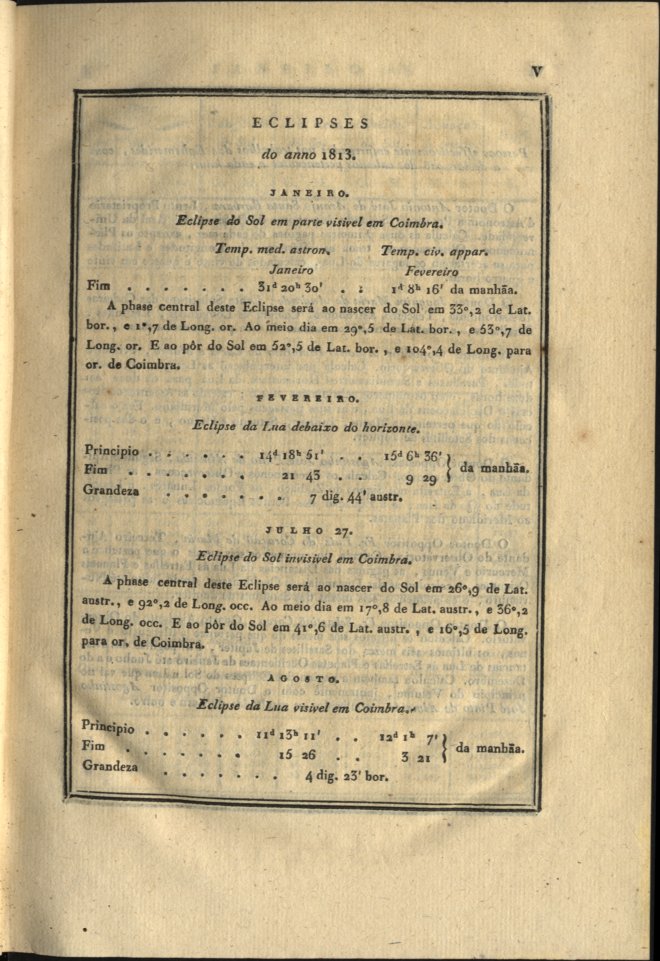 V
ECLIPSES
do anno 1813.
JANEIRO.
Eclipse do Sol em parte visivel em Coimbra.
Temp. med. astron. Temp. civ. appar.
Janeiro Fevereiro
Fim . . . . . . . 31ᵈ 20ʰ 30′ . . 1ᵈ 8ʰ 16′ da manhãa.
A phase central deste Eclipse será ao nascer do Sol em 33°,2 de Lat.
bor., e 1°,7 de Long. or. Ao meio dia em 29°,5 de Lat. bor., e 53°,7 de
Long. or. E ao pôr do Sol em 52°,5 de Lat. bor., e 104°,4 de Long. para
or. de Coimbra.
FEVEREIRO.
Eclipse da Lua debaixo do horizonte.
Principio . . . . . . 14ᵈ 18ʰ 51′ . . 15ᵈ 6ʰ 36′
Fim . . . . . . . 21 43 . . 9 29 } da manhãa.
Grandeza . . . . . . . 7 dig. 44′ austr.
JULHO 27.
Eclipse do Sol invisivel em Coimbra.
A phase central deste Eclipse será ao nascer do Sol em 26°,9 de Lat.
austr., e 92°,2 de Long. occ. Ao meio dia em 17°,8 de Lat. austr., e 36°,2
de Long. occ. E ao pôr do Sol em 41°,6 de Lat. austr., e 16°,5 de Long.
para or. de Coimbra.
AGOSTO.
Eclipse da Lua visivel em Coimbra.
Principio . . . . . . 11ᵈ 13ʰ 11′ . . 12ᵈ 1ʰ 7′
Fim . . . . . . . 15 26 . . 3 21 } da manhãa.
Grandeza . . . . . . . 4 dig. 23′ bor.